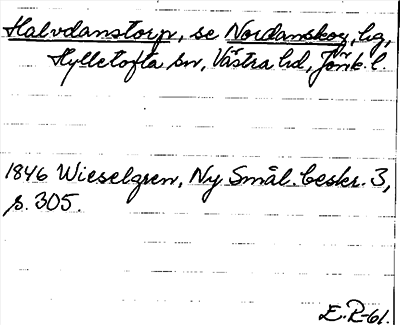 Halvdanstorp, se Nordanskog, hg,
Hylletofta sn, Västra hd, Jönk. l.
1846 Wieselgren, Ny Smål. beskr. 3,
s. 305.
E. P-61.